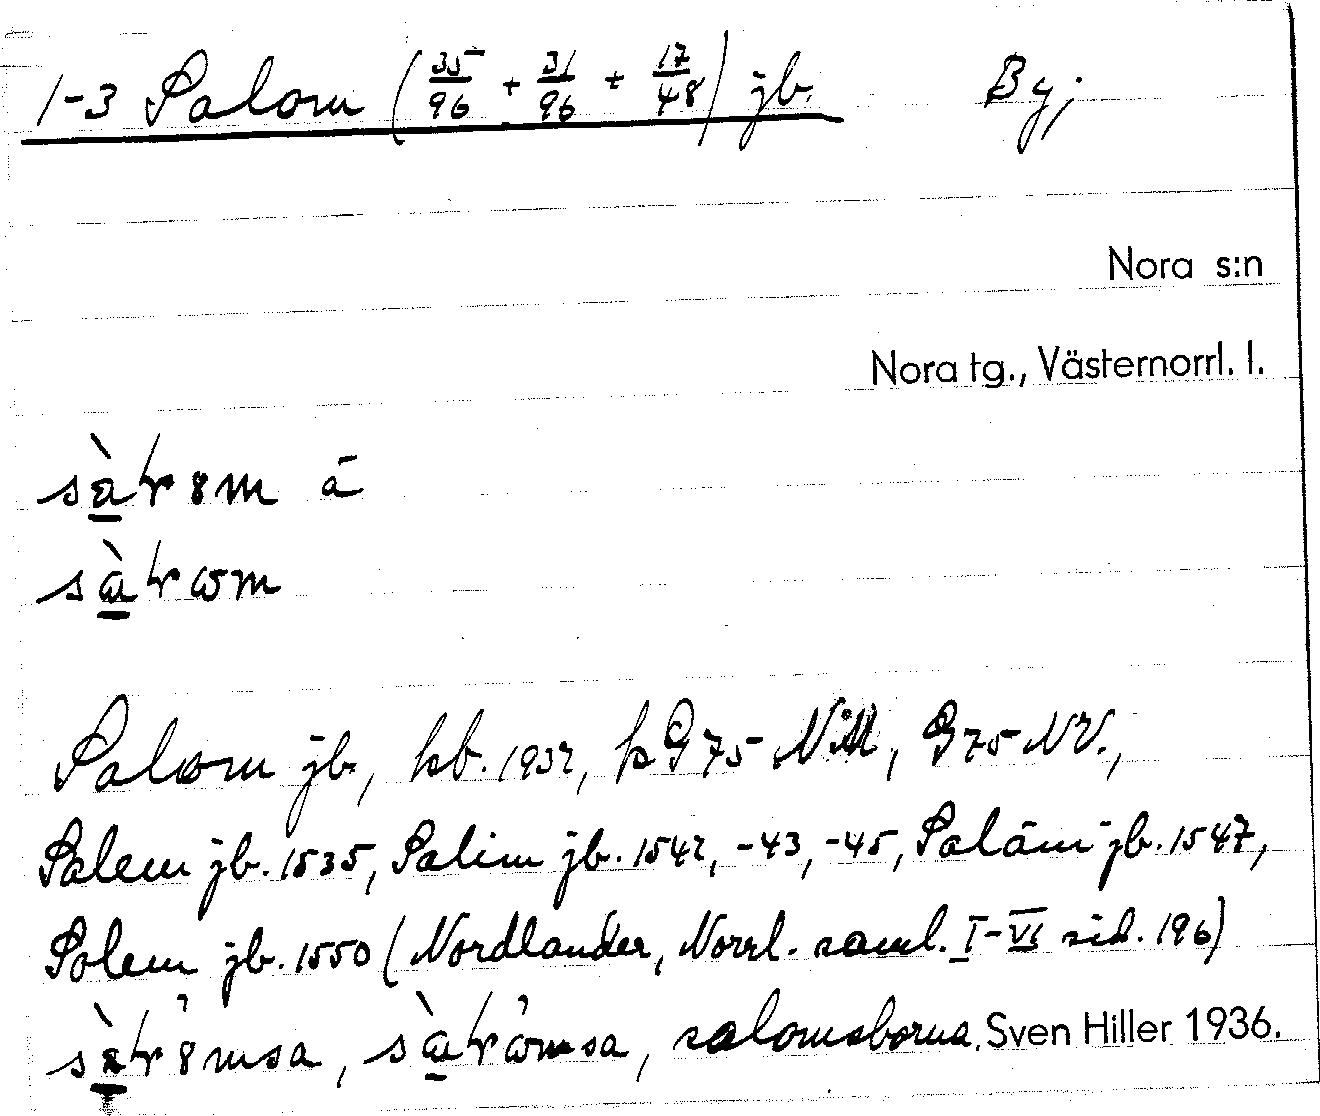 1-3 Salom (35/96 + 31/96 + 17/48) jb. By;
Nora s:n
Nora tg., Västernorrl. l.
Salom jb., kb. 1937, G75 NV.,
Salem jb. 1535, Salim jb. 1542, -43, -45, Salām jb. 1547,
Solem jb. 1550 (Nordlander, Norrl. saml. I-VI sid. 196)
salomsborna. Sven Hiller 1936.